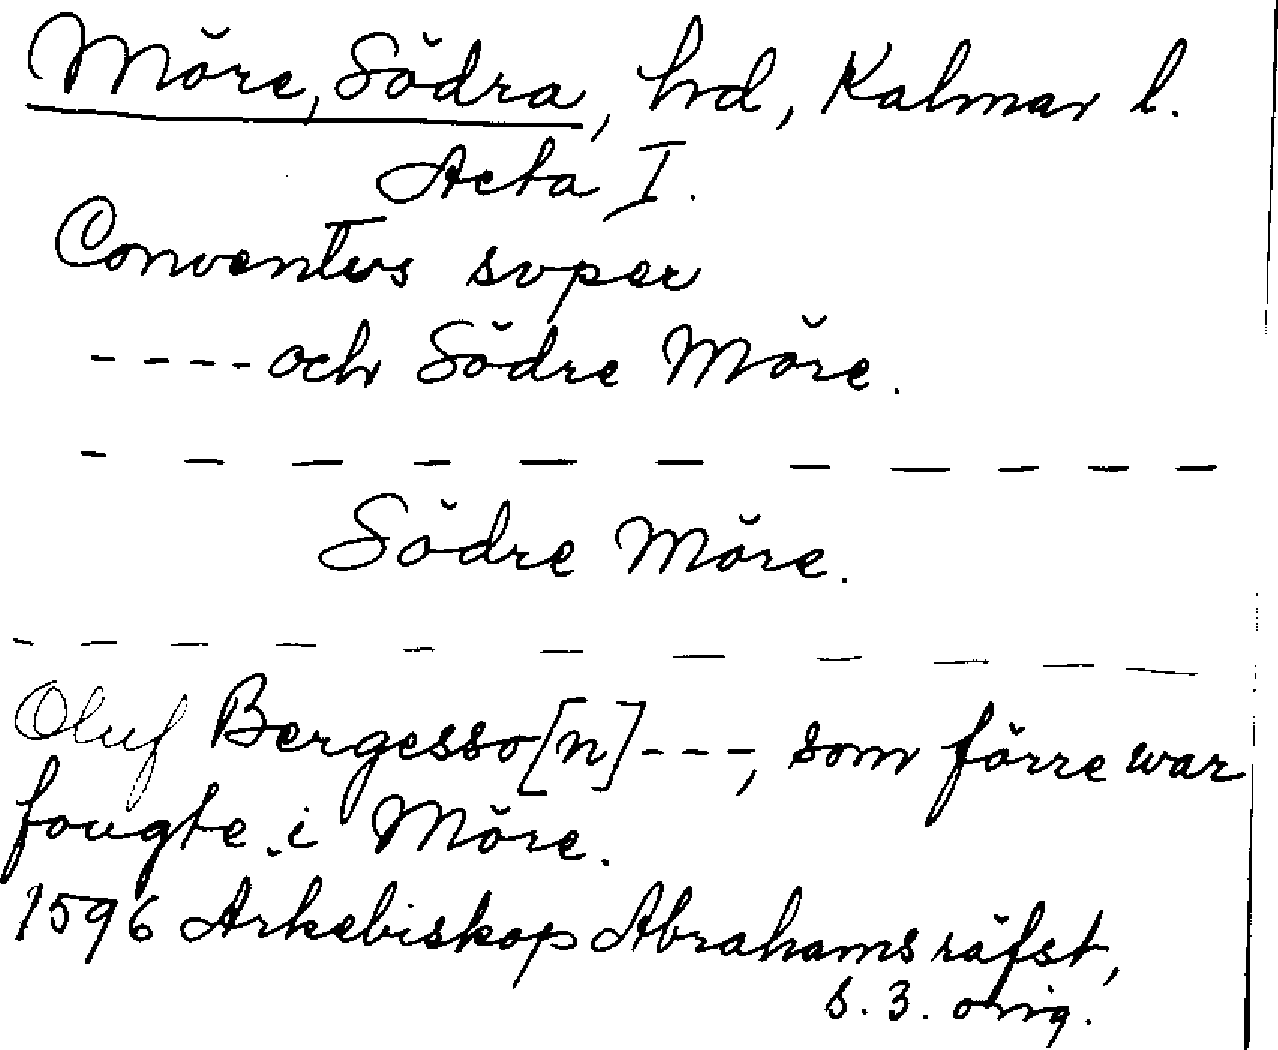 Möre, Södra, hrd, Kalmar l.
Acta I.
Conventus super
- - - - och Södre Möre.
- - - - - - - - - - -
Södre Möre.
- - - - - - - - - - -
Oluf Bergesso[n] - - -, som förre war
fougte i Möre.
1596 Ärkebiskop Abrahams räfst,
s. 3. orig.